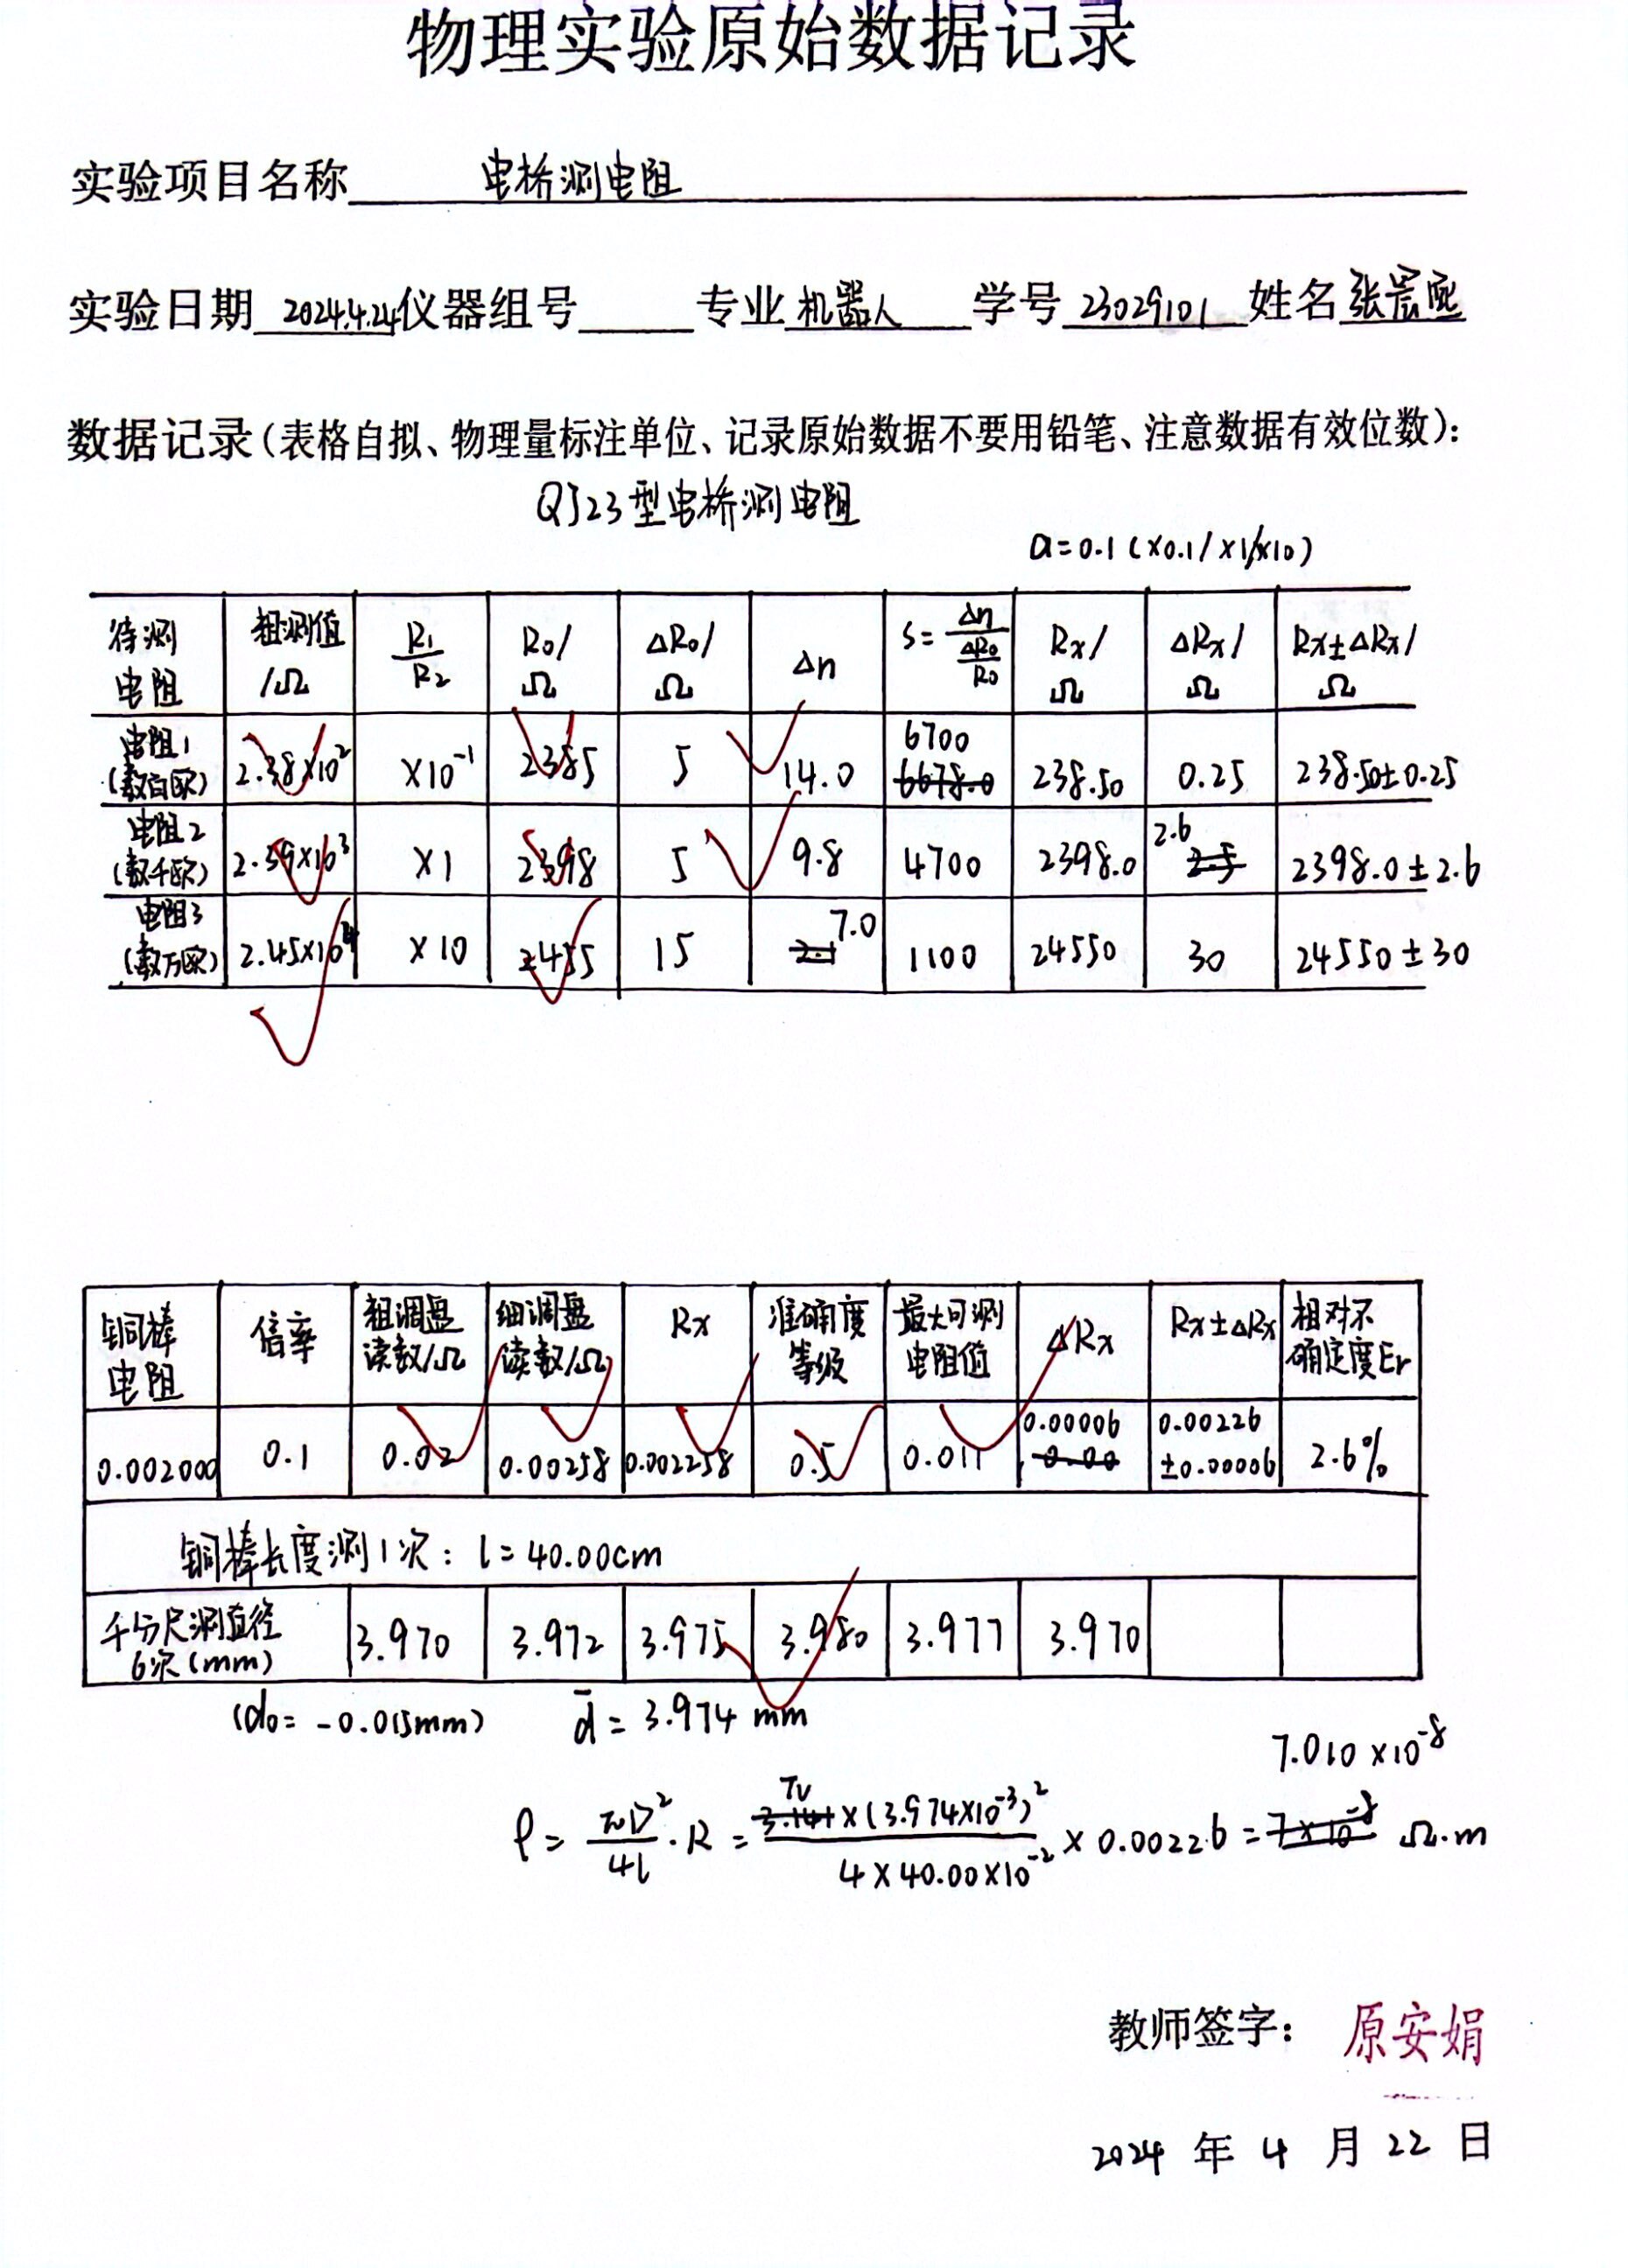 物理实验原始数据记录
实验项目名称 电桥测电阻
实验日期 2024.4.24 仪器组号 专业 机器人 学号 23029101 姓名 张宸熙
数据记录(表格自拟、物理量标注单位、记录原始数据不要用铅笔、注意数据有效位数):
QJ23型电桥测电阻
a=0.1 (×0.1/×1/×10)
待测电阻 粗测值/Ω R₁/R₂ R₀/Ω ΔR₀/Ω Δn S=Δn/(ΔR₀/R₀) Rx/Ω ΔRx/Ω Rx±ΔRx/Ω
电阻1(数百欧) 2.38×10² ×10⁻¹ 2385 5 14.0 6700 6678.0 238.50 0.25 238.50±0.25
电阻2(数千欧) 2.39×10³ ×1 2398 5 9.8 4700 2398.0 2.6 2.5 2398.0±2.6
电阻3(数万欧) 2.45×10⁴ ×10 2455 15 7.0 2.1 1100 24550 30 24550±30
铜棒电阻 倍率 粗调盘读数/Ω 细调盘读数/Ω Rx 准确度等级 最大可测电阻值 ΔRx Rx±ΔRx 相对不确定度Er
0.002000 0.1 0.02 0.00258 0.002258 0.5 0.011 0.00006 0.00 0.00226±0.00006 2.6%
铜棒长度测1次: l=40.00cm
千分尺测直径6次(mm) 3.970 3.972 3.975 3.980 3.977 3.970
(d₀=-0.015mm) d̄=3.974 mm
7.010×10⁻⁸
ρ=πD²/4l·R=π 3.141×(3.974×10⁻³)²/4×40.00×10⁻²×0.00226=7×10⁻⁸ Ω·m
教师签字: 原安娟
2024 年 4 月 22 日